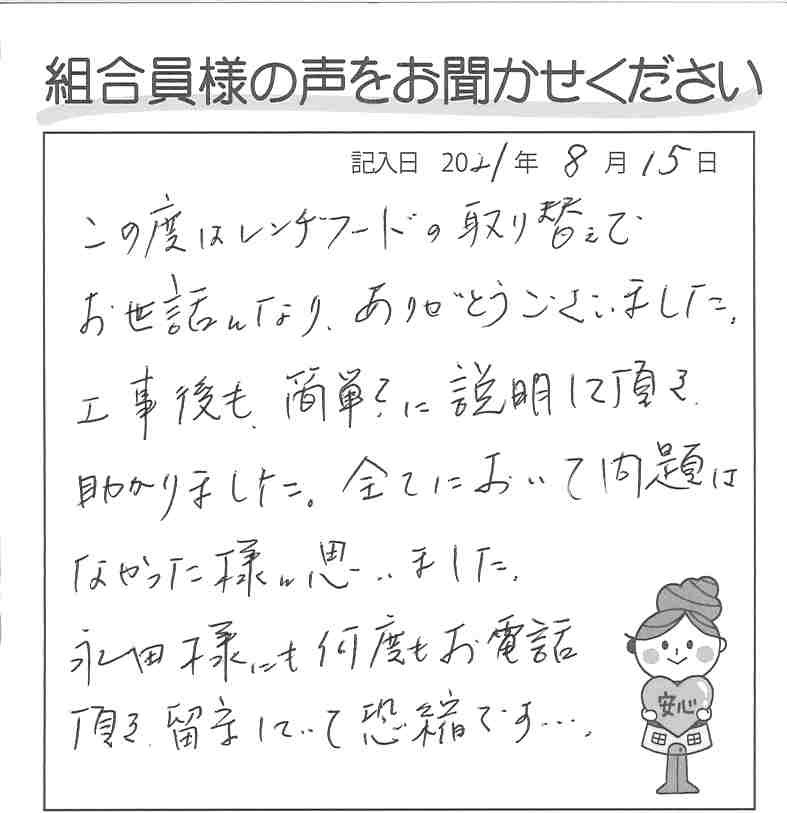 組合員様の声をお聞かせください
記入日 2021年 8月 15日
この度はレンヂフードの取り替えで
お世話になり、ありがとうございました。
工事後も、簡単に説明して頂き、
助かりました。全てにおいて問題は
なかった様に思いました。
永田様にも何度もお電話
頂き、留守にていて恐縮です…。
安心